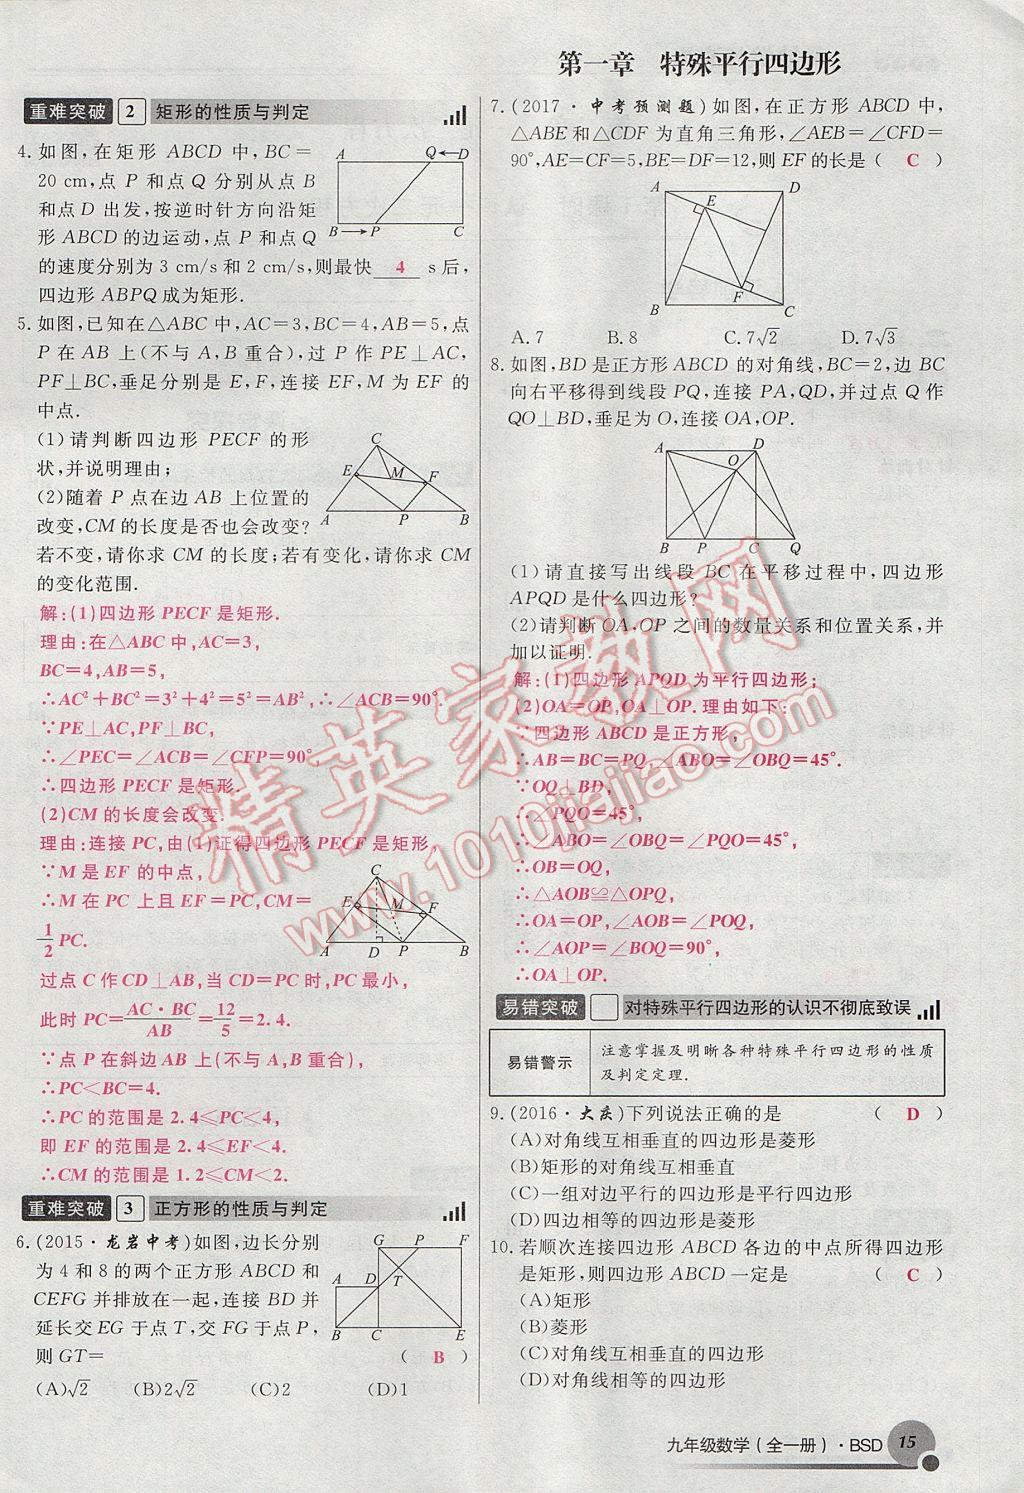 第一章 特殊平行四边形
重难突破 2 矩形的性质与判定
4.如图,在矩形 ABCD 中,BC=
20 cm,点 P 和点 Q 分别从点 B
和点 D 出发,按逆时针方向沿矩
形 ABCD 的边运动,点 P 和点 Q
的速度分别为 3 cm/s 和 2 cm/s,则最快 4 s后,
四边形 ABPQ 成为矩形.
A Q D
B P C
5.如图,已知在△ABC 中,AC=3,BC=4,AB=5,点
P 在 AB 上(不与 A,B 重合),过 P 作 PE⊥AC,
PF⊥BC,垂足分别是 E,F,连接 EF,M 为 EF 的
中点.
(1)请判断四边形 PECF 的形
状,并说明理由;
(2)随着 P 点在边 AB 上位置的
改变,CM 的长度是否也会改变?
若不变,请你求 CM 的长度;若有变化,请你求 CM
的变化范围.
C
E M F
A P B
解:(1)四边形 PECF 是矩形.
理由:在△ABC 中,AC=3,
BC=4,AB=5,
∴AC²+BC²=3²+4²=5²=AB²,∴∠ACB=90°.
∵PE⊥AC,PF⊥BC,
∴∠PEC=∠ACB=∠CFP=90°.
∴四边形 PECF 是矩形.
(2)CM 的长度会改变.
理由:连接 PC,由(1)证得四边形 PECF 是矩形,
∵M 是 EF 的中点,
∴M 在 PC 上且 EF=PC,CM=
1/2 PC.
C
E M F
A D P B
过点 C 作 CD⊥AB,当 CD=PC 时,PC 最小,
此时 PC=AC·BC/AB=12/5=2.4.
∵点 P 在斜边 AB 上(不与 A,B 重合),
∴PC<BC=4.
∴PC 的范围是 2.4≤PC<4,
即 EF 的范围是 2.4≤EF<4.
∴CM 的范围是 1.2≤CM<2.
重难突破 3 正方形的性质与判定
6.(2015·龙岩中考)如图,边长分别
为 4 和 8 的两个正方形 ABCD 和
CEFG 并排放在一起,连接 BD 并
延长交 EG 于点 T,交 FG 于点 P,
则 GT= ( B )
G P F
A D T
B C E
(A)√2 (B)2√2 (C)2 (D)1
7.(2017·中考预测题)如图,在正方形 ABCD 中,
△ABE 和△CDF 为直角三角形,∠AEB=∠CFD=
90°,AE=CF=5,BE=DF=12,则 EF 的长是 ( C )
A D
E
F
B C
A.7 B.8 C.7√2 D.7√3
8.如图,BD 是正方形 ABCD 的对角线,BC=2,边 BC
向右平移得到线段 PQ,连接 PA,QD,并过点 Q 作
QO⊥BD,垂足为 O,连接 OA,OP.
A D
O
B P C Q
(1)请直接写出线段 BC 在平移过程中,四边形
APQD 是什么四边形?
(2)请判断 OA,OP 之间的数量关系和位置关系,并
加以证明.
解:(1)四边形 APQD 为平行四边形;
(2)OA=OP,OA⊥OP.理由如下:
∵四边形 ABCD 是正方形,
∴AB=BC=PQ,∠ABO=∠OBQ=45°.
∵OQ⊥BD,
∴∠PQO=45°,
∴∠ABO=∠OBQ=∠PQO=45°,
∴OB=OQ,
∴△AOB≌△OPQ,
∴OA=OP,∠AOB=∠POQ,
∴∠AOP=∠BOQ=90°,
∴OA⊥OP.
易错突破 对特殊平行四边形的认识不彻底致误
易错警示 注意掌握及明晰各种特殊平行四边形的性质
及判定定理.
9.(2016·大庆)下列说法正确的是 ( D )
(A)对角线互相垂直的四边形是菱形
(B)矩形的对角线互相垂直
(C)一组对边平行的四边形是平行四边形
(D)四边相等的四边形是菱形
10.若顺次连接四边形 ABCD 各边的中点所得四边形
是矩形,则四边形 ABCD 一定是 ( C )
(A)矩形
(B)菱形
(C)对角线互相垂直的四边形
(D)对角线相等的四边形
九年级数学(全一册)·BSD 15
精英家教网
www.1010jiajiao.com